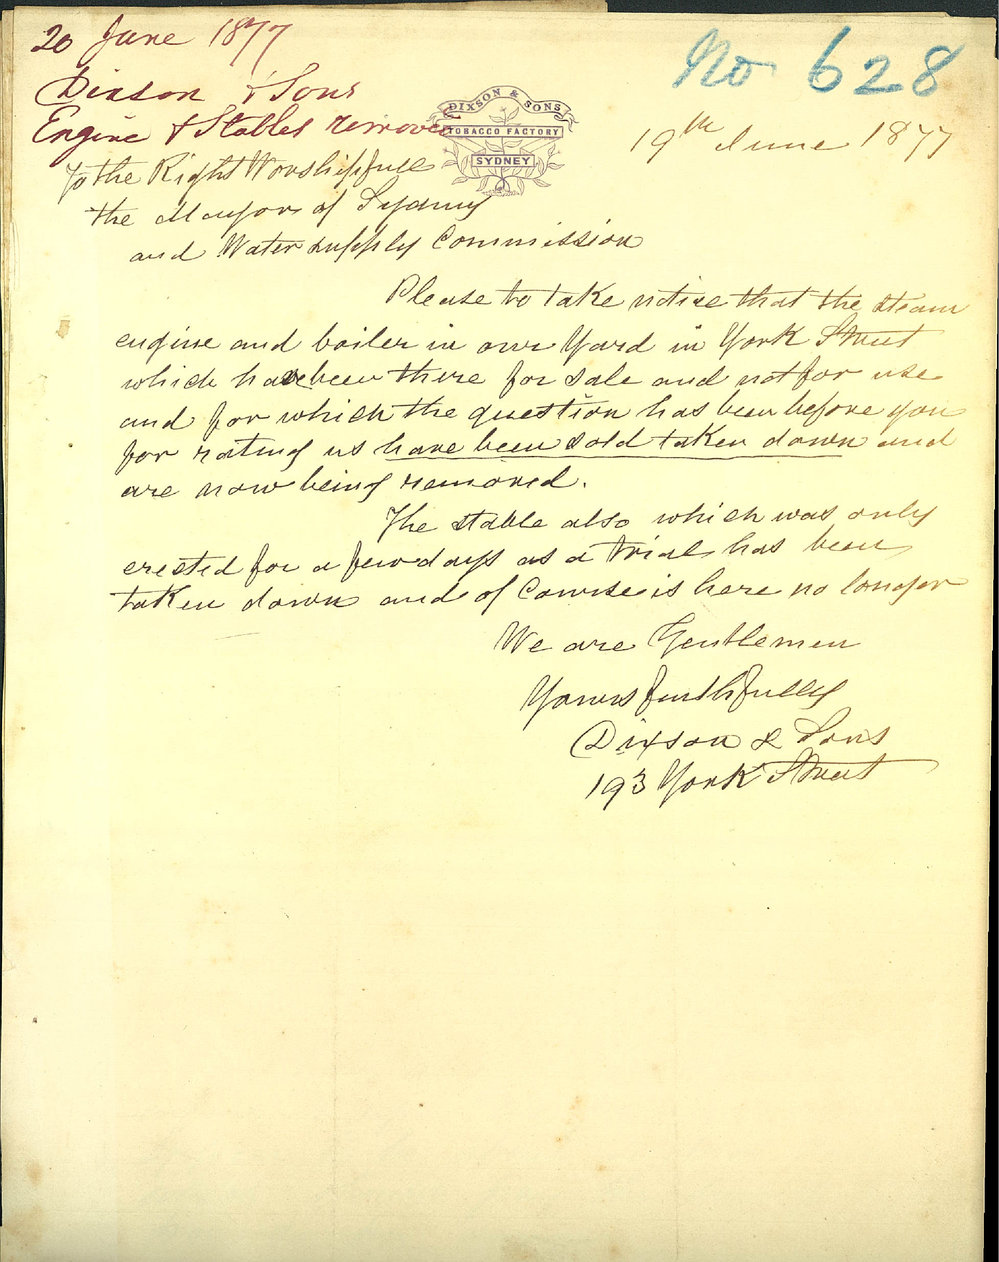 20 June 1877
Dixson & Sons
Engine & Stables removed
No 628
DIXSON & SONS
TOBACCO FACTORY
SYDNEY
19th June 1877
To the Right Worshipfull
the Mayor of Sydney
and Water supply Commission
Please to take notice that the steam
engine and boiler in our Yard in York Street
which have been there for sale and not for use
and for which the question has been before you
for rating us have been sold taken down and
are now being removed.
The stable also which was only
erected for a few days as a trial has been
taken down and of Course is here no longer
We are Gentlemen
Yours faithfully
Dixson & Sons
193 York Street